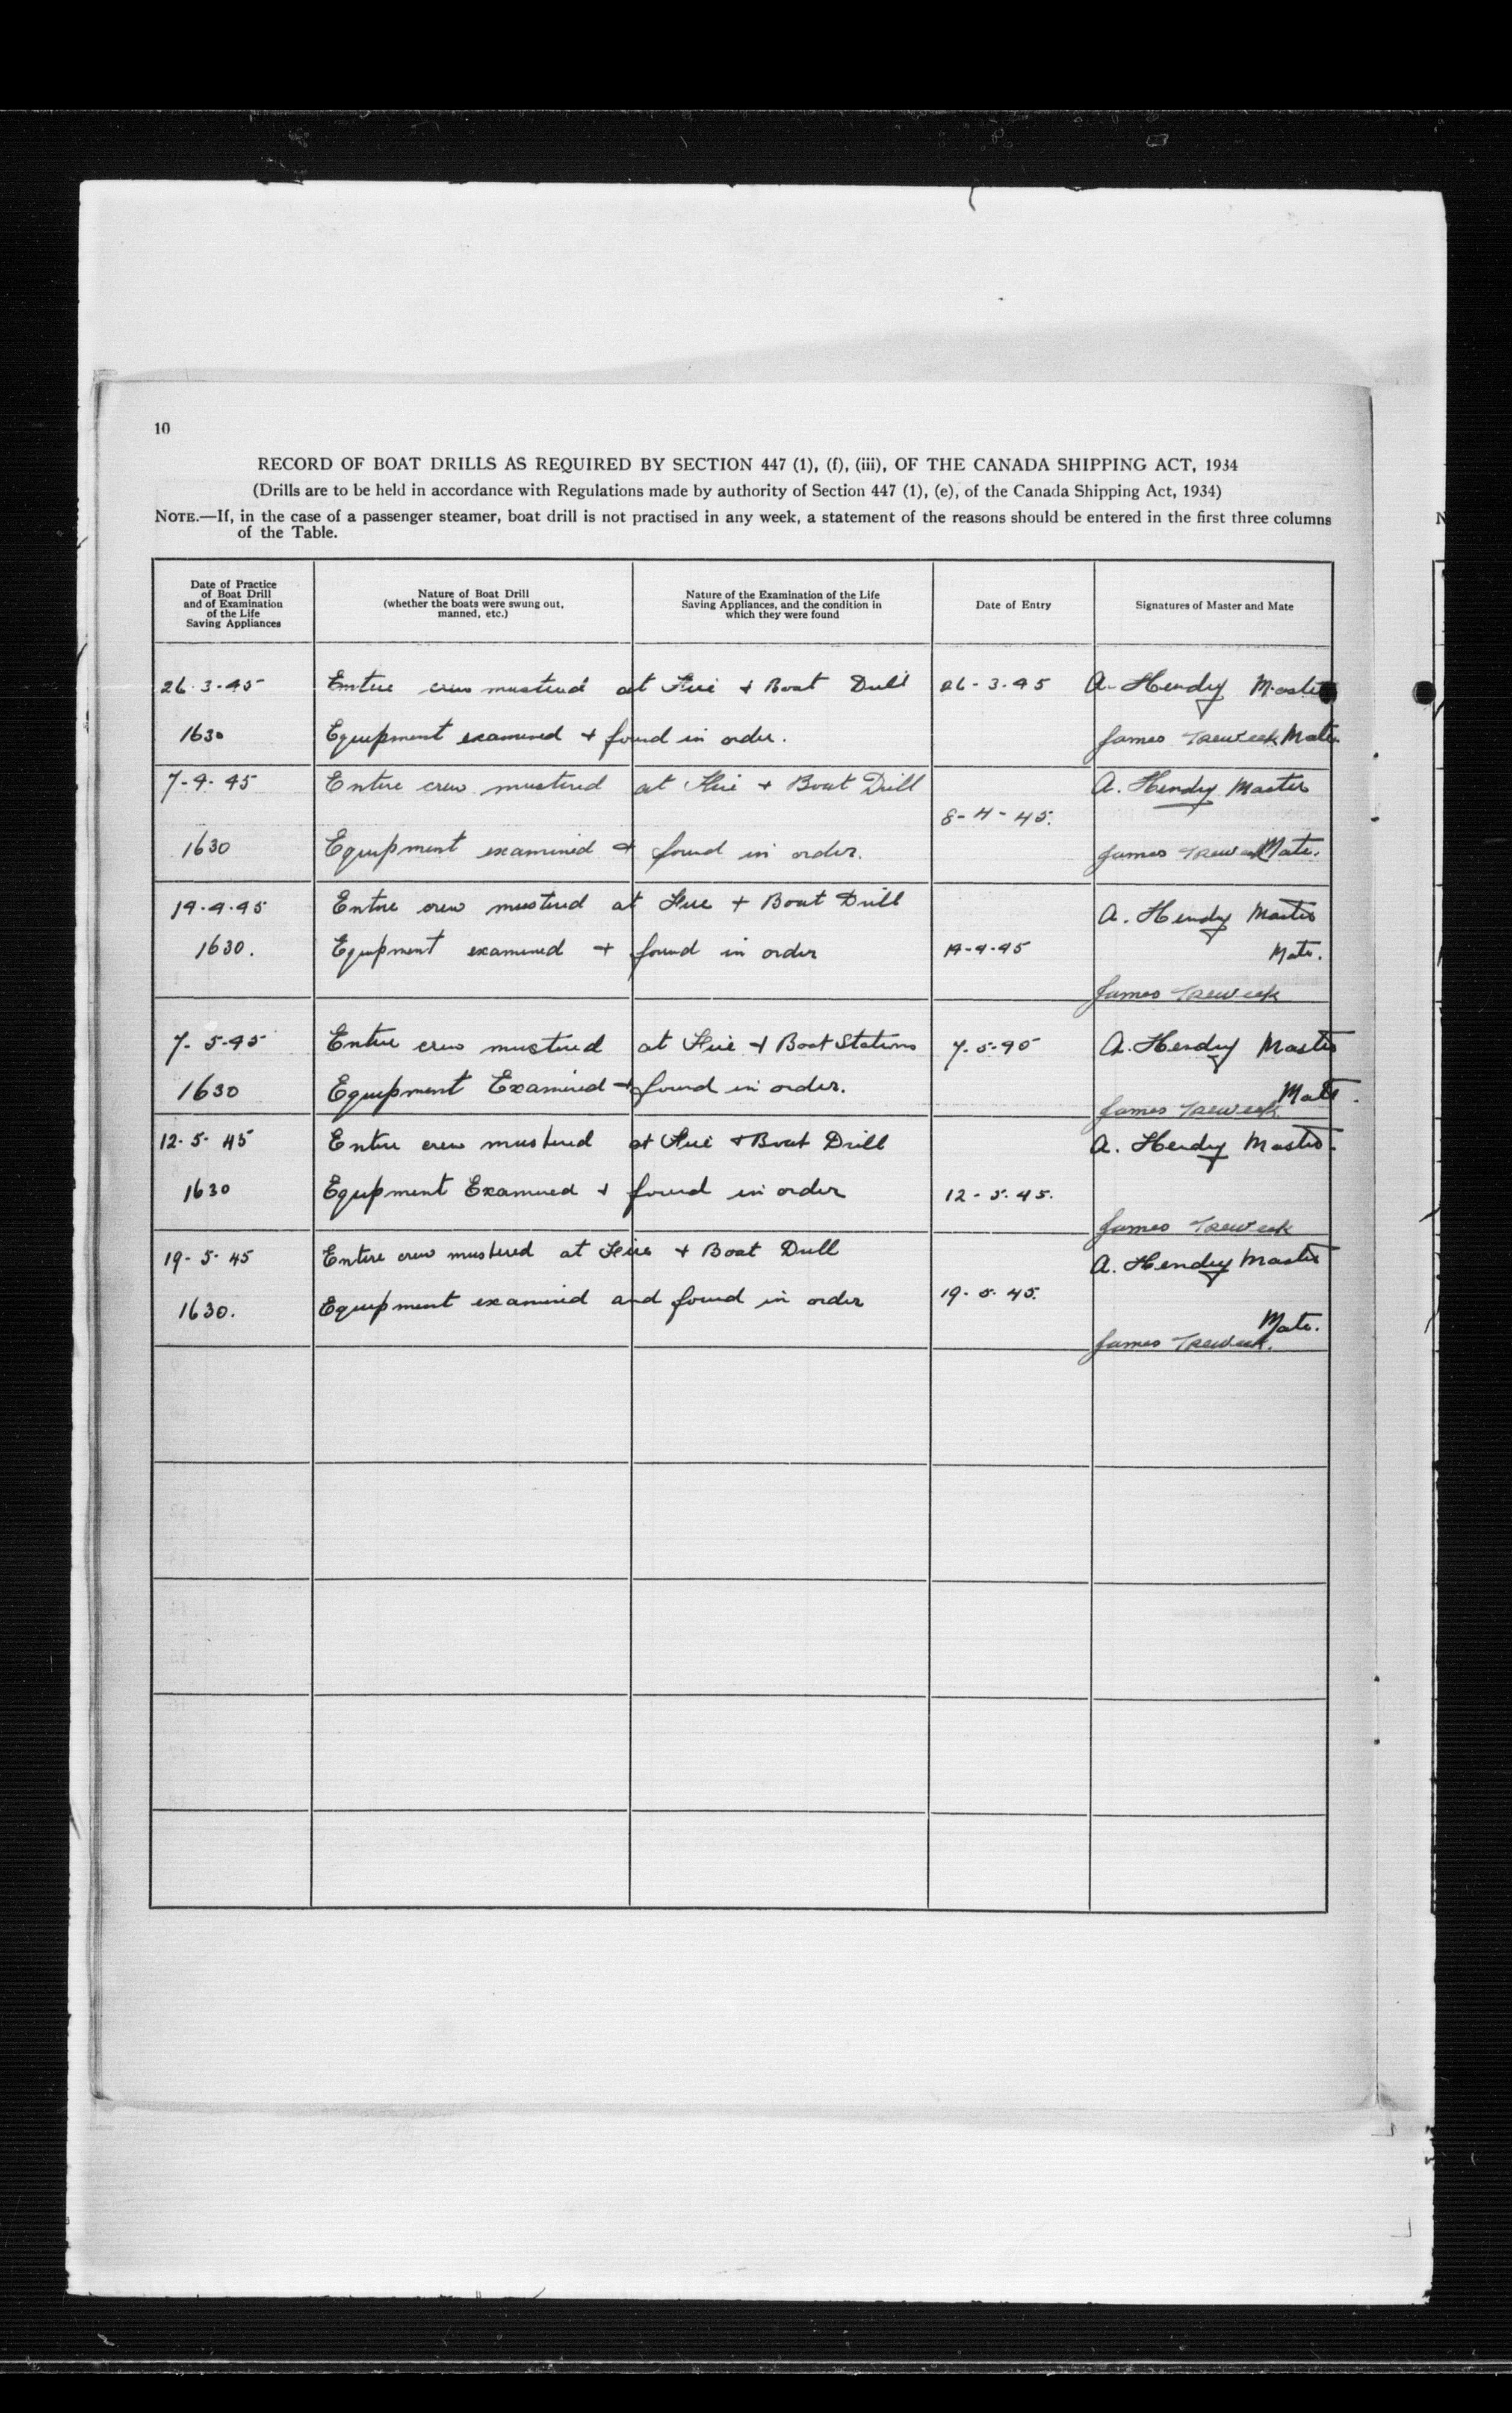 10
RECORD OF BOAT DRILLS AS REQUIRED BY SECTION 447 (1), (f), (iii), OF THE CANADA SHIPPING ACT, 1934
(Drills are to be held in accordance with Regulations made by authority of Section 447 (1), (e), of the Canada Shipping Act, 1934)
NOTE.—If, in the case of a passenger steamer, boat drill is not practised in any week, a statement of the reasons should be entered in the first three columns
of the Table.
Date of Practice
of Boat Drill
and of Examination
of the Life
Saving Appliances
Nature of Boat Drill
(whether the boats were swung out,
manned, etc.)
Nature of the Examination of the Life
Saving Appliances, and the condition in
which they were found
Date of Entry
Signatures of Master and Mate
26.3.45 Entire crew mustered at Fire + Boat Drill 26-3.45 A. Hendry Master
1630 Equipment examined + found in order. James Treweek Mate.
7-4-45 Entire crew mustered at Fire + Boat Drill A. Hendry Master
8-4-45.
1630 Equipment examined + found in order. James Treweek Mate.
19.4.45 Entire crew mustered at Fire + Boat Drill A. Hendry Master
1630. Equipment examined + found in order 19-4-45 Mate.
James Treweek
7-5-45 Entire crew mustered at Fire + Boat Stations 7.5.45 A. Hendry Master
1630 Equipment Examined + found in order. James Treweek Mate.
12-5-45 Entire crew mustered at Fire + Boat Drill A. Hendry Master.
1630 Equipment Examined + found in order 12-5.45.
James Treweek
19-5-45 Entire crew mustered at Fire + Boat Drill A. Hendry Master
1630. Equipment examined and found in order 19-5-45.
James Treweek. Mate.